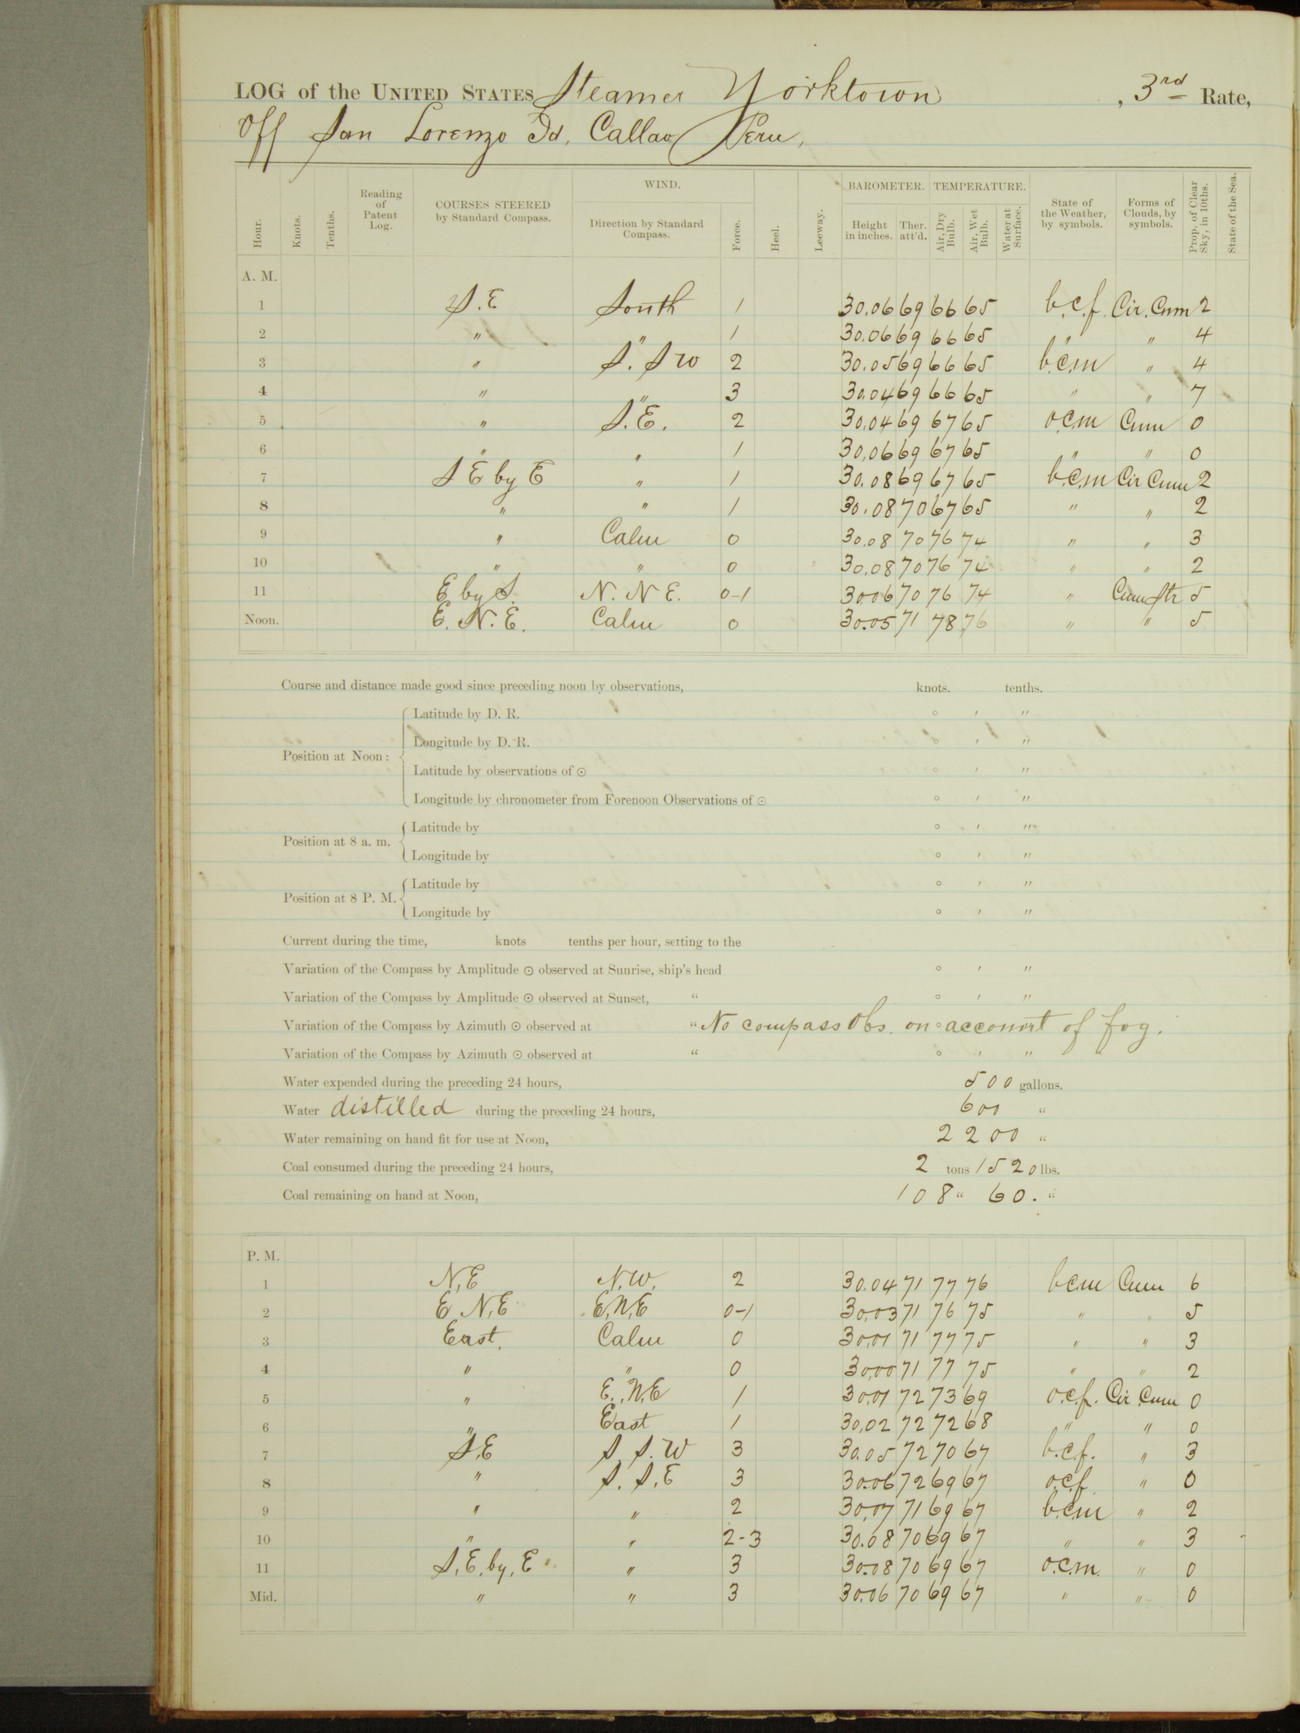 LOG of the UNITED STATES Steamer Yorktown , 3rd Rate,
Off San Lorenzo Id, Callao Peru,
Hour. Knots. Tenths. Reading of Patent Log. COURSES STEERED by Standard Compass. WIND. Direction by Standard Compass. Force. Heel. Leeway. BAROMETER. Height in inches. Ther. att'd. TEMPERATURE. Air, Dry Bulb. Air, Wet Bulb. Water at Surface. State of the Weather, by symbols. Forms of Clouds, by symbols. Prop. of Clear Sky, in 10ths. State of the Sea.
A. M.
1 S.E South 1 30.06 69 66 65 b.c.f. Cir.Cum 2
2 " " 1 30.06 69 66 65 " " 4
3 " S.SW 2 30.05 69 66 65 b.c.m " 4
4 " " 3 30.04 69 66 65 " " 7
5 " S.E. 2 30.04 69 67 65 o.c.m Cum 0
6 " " 1 30.06 69 67 65 " " 0
7 SE by E " 1 30.08 69 67 65 b.c.m Cir Cum 2
8 " " 1 30.08 70 67 65 " " 2
9 " Calm 0 30.08 70 76 74 " " 3
10 " " 0 30.08 70 76 74 " " 2
11 E by S. N.N E. 0-1 30.06 70 76 74 " Cum Str 5
Noon. E. N. E. Calm 0 30.05 71 78 76 " " 5
Course and distance made good since preceding noon by observations, knots. tenths.
Position at Noon: Latitude by D. R. ° ' "
Longitude by D. R. ° ' "
Latitude by observations of ☉ ° ' "
Longitude by chronometer from Forenoon Observations of ☉ ° ' "
Position at 8 a. m. Latitude by ° ' "
Longitude by ° ' "
Position at 8 P. M. Latitude by ° ' "
Longitude by ° ' "
Current during the time, knots tenths per hour, setting to the
Variation of the Compass by Amplitude ☉ observed at Sunrise, ship's head ° ' "
Variation of the Compass by Amplitude ☉ observed at Sunset, " ° ' "
Variation of the Compass by Azimuth ☉ observed at " No compass Obs. on account of fog.
Variation of the Compass by Azimuth ☉ observed at " ° ' "
Water expended during the preceding 24 hours, 500 gallons.
Water distilled during the preceding 24 hours, 600 "
Water remaining on hand fit for use at Noon, 2200 "
Coal consumed during the preceding 24 hours, 2 tons 1520 lbs.
Coal remaining on hand at Noon, 108 " 60. "
P. M.
1 N.E N.W. 2 30.04 71 77 76 bcm Cum 6
2 E N.E E.N.E 0-1 30.03 71 76 75 " " 5
3 East. Calm 0 30.01 71 77 75 " " 3
4 " " 0 30.00 71 77 75 " " 2
5 " E.N.E 1 30.01 72 73 69 o.c.f. Cir Cum 0
6 " East 1 30.02 72 72 68 " " 0
7 S.E S.S.W 3 30.05 72 70 67 b.c.f. " 3
8 " S.S.E 3 30.06 72 69 67 o.c.f " 0
9 " " 2 30.07 71 69 67 b.c.m " 2
10 " " 2-3 30.08 70 69 67 " " 3
11 S.E. by. E " 3 30.08 70 69 67 o.c.m. " 0
Mid. " " 3 30.06 70 69 67 " " 0